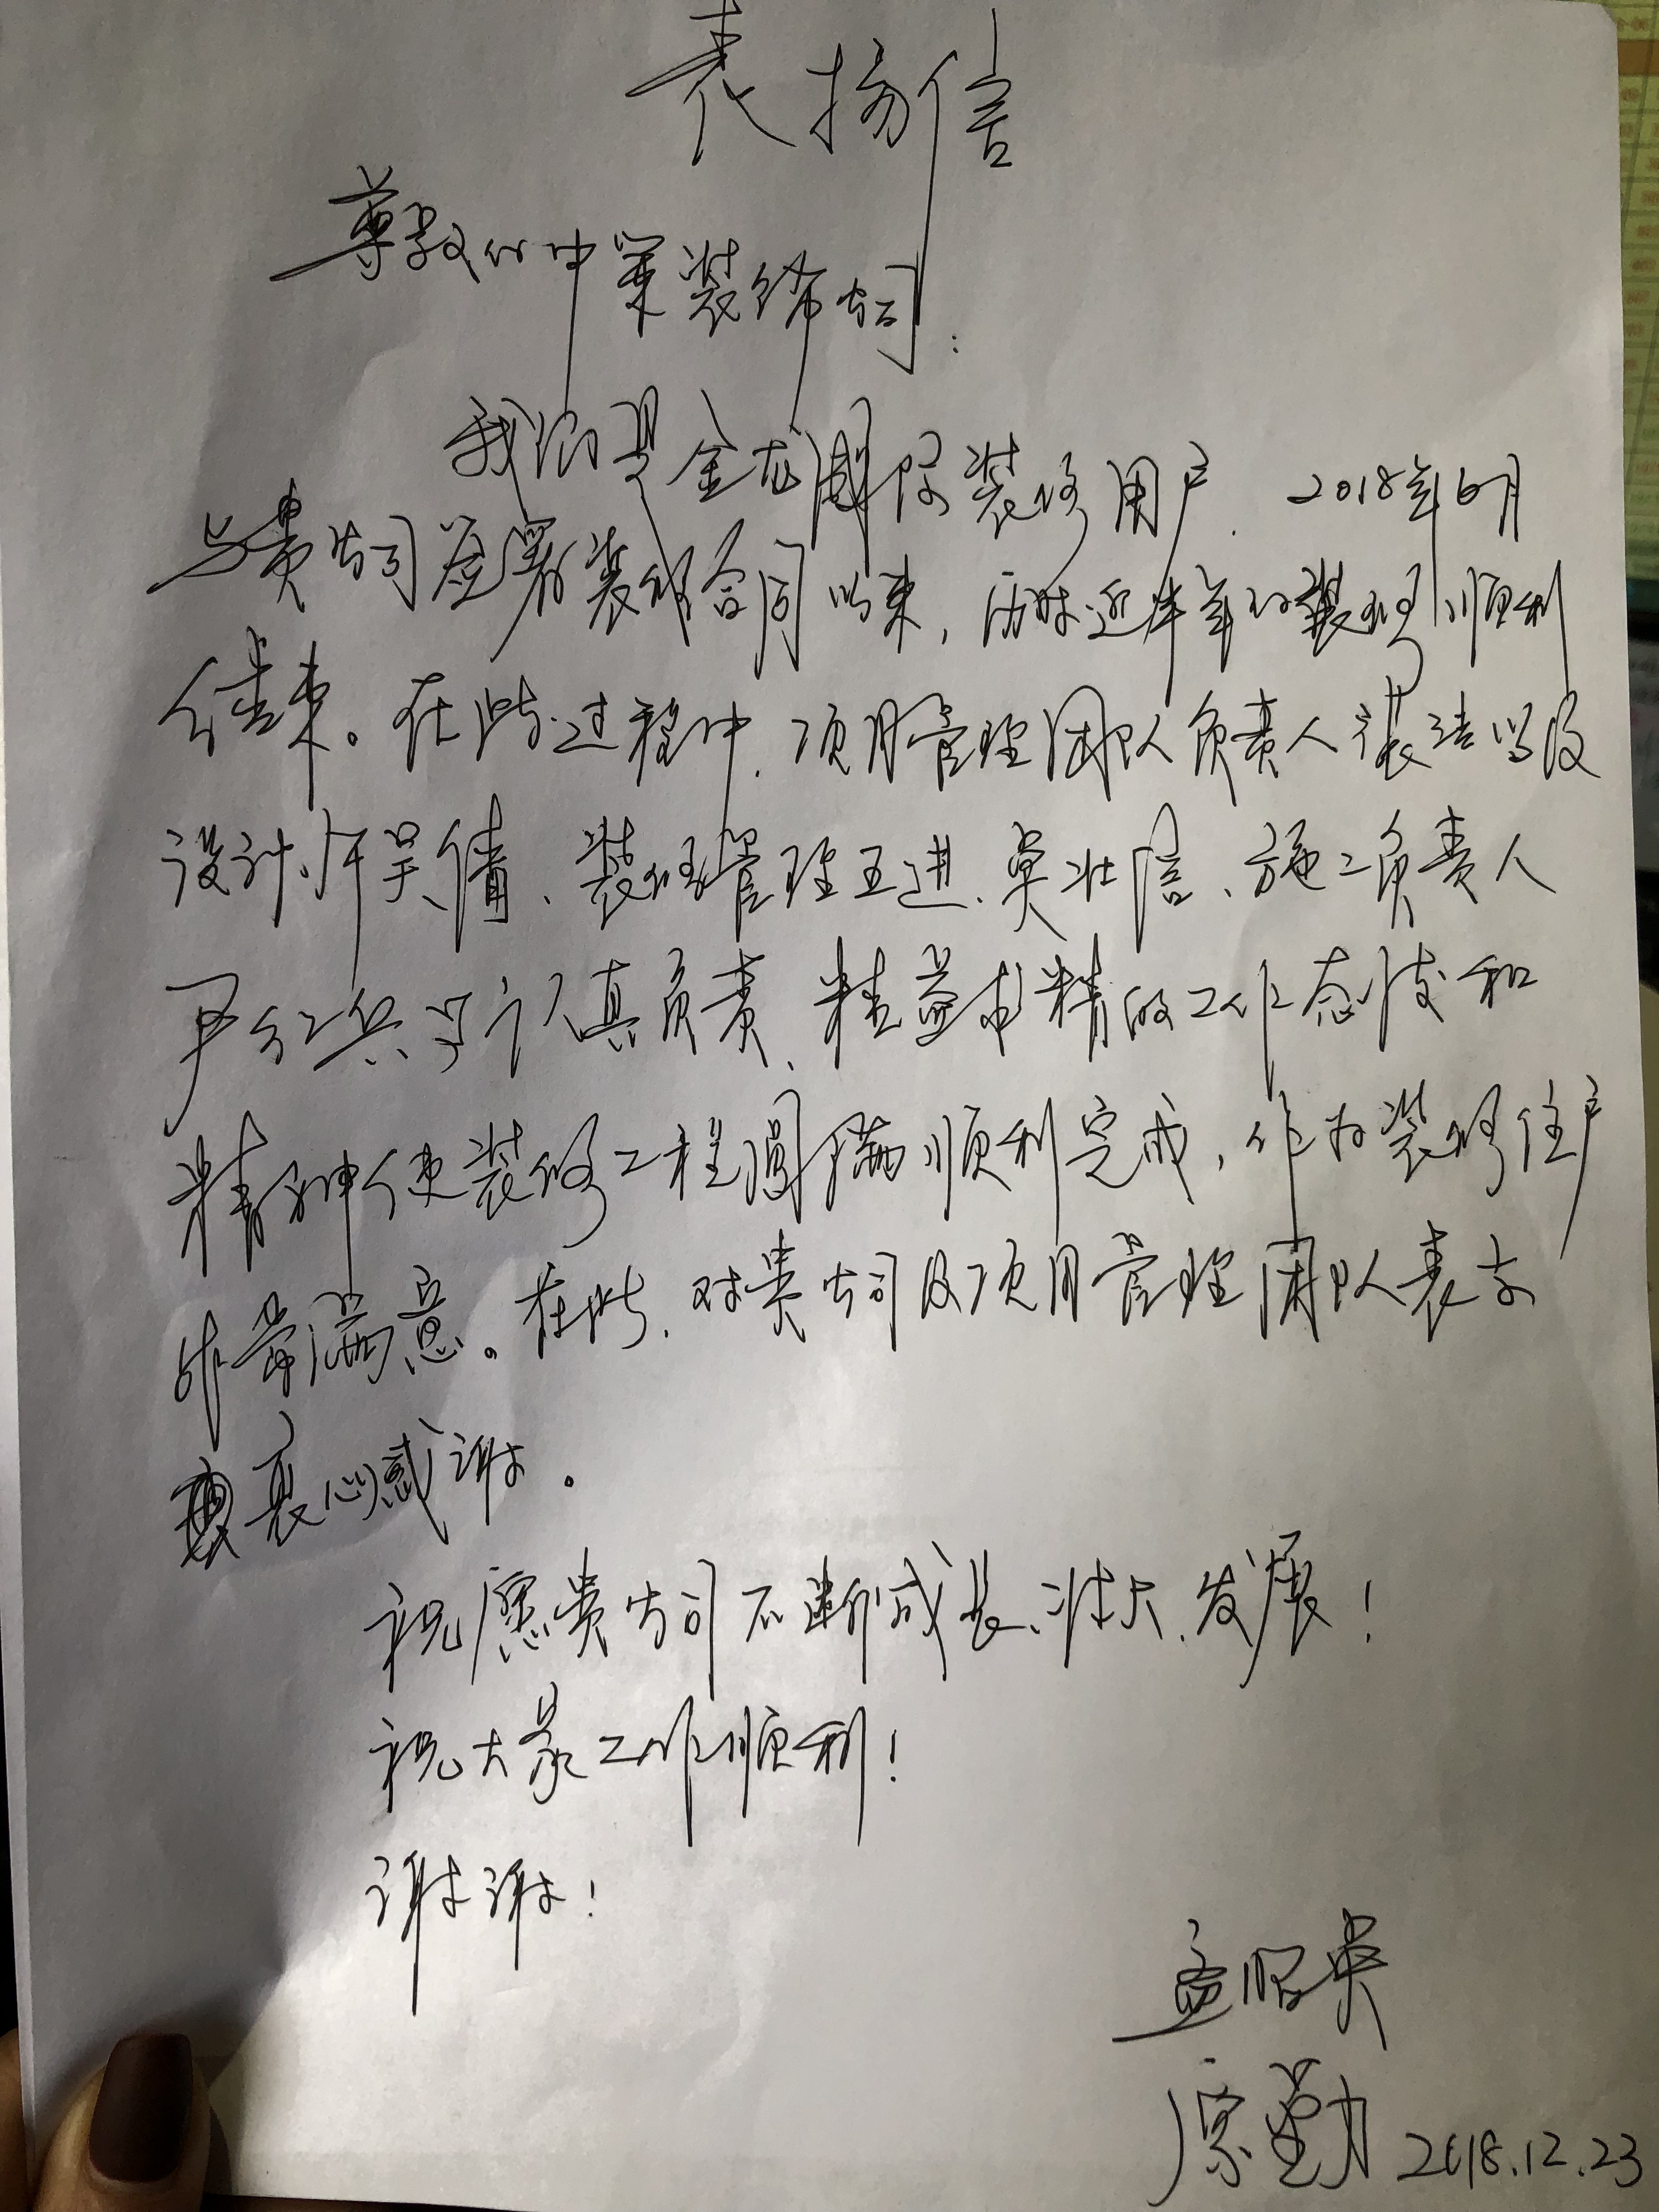 表扬信
尊敬的中策装饰公司:
我们是金龙国际装修用户. 2018年6月
与贵公司签署装修合同以来，历时近半年的装修顺利
结束。在此过程中, 项目管理团队负责人裴洁以及
设计师吴倩、装修管理王进、莫壮信、施工负责人
尹红兵等认真负责、精益求精的工作态度和
精神使装修工程圆满顺利完成，作为装修住户
非常满意。在此, 对贵公司及项目管理团队表示
衷心感谢。
祝愿贵公司不断成长、壮大、发展！
祝大家工作顺利！
谢谢！
孟昭英
原勤 2018.12.23